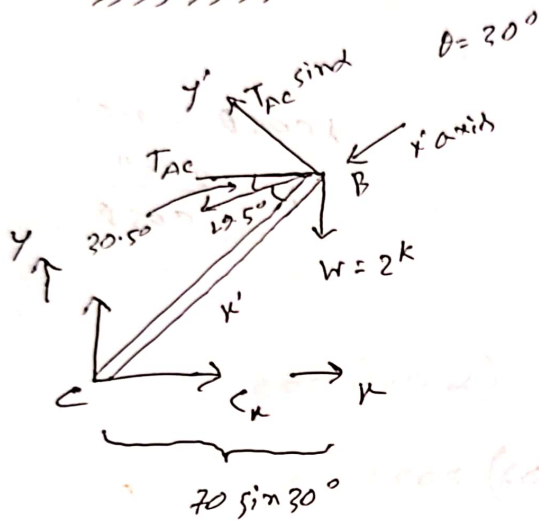 θ = 30°
y' T_AC sinα
x' axis
T_AC
B
30.5°
29.5°
y
W = 2^K
x'
C
C_x x
70 sin 30°